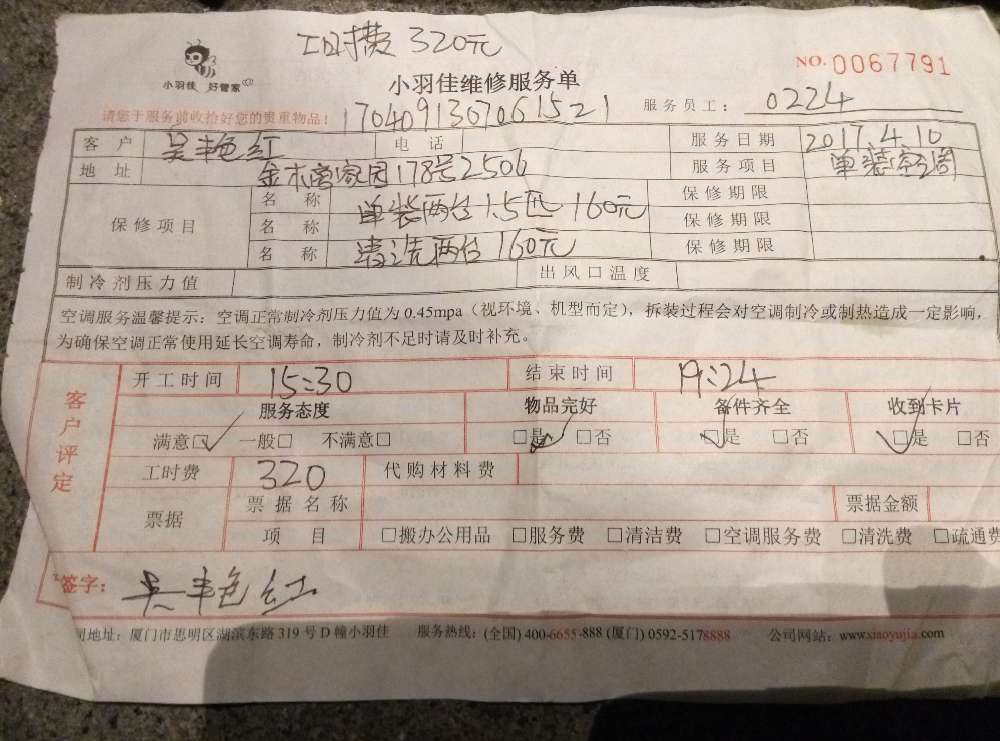 工时费 320元
小羽佳 好管家
NO. 0067791
小羽佳维修服务单
请您于服务前收拾好您的贵重物品！
1704091307061521
服务员工： 0224
客户 吴艳红 电话 服务日期 2017.4.10
地址 178号2506 服务项目 单装空调
保修项目 名称 单装两台1.5匹 160元 保修期限
名称 保修期限
名称 清洗两台 160元 保修期限
制冷剂压力值 出风口温度
空调服务温馨提示：空调正常制冷剂压力值为 0.45mpa（视环境、机型而定），拆装过程会对空调制冷或制热造成一定影响，
为确保空调正常使用延长空调寿命，制冷剂不足时请及时补充。
客户评定
开工时间 15:30 结束时间 19:24
服务态度 物品完好 备件齐全 收到卡片
满意□ 一般□ 不满意□ □是 □否 □是 □否 □是 □否
工时费 320 代购材料费
票据 票据名称 票据金额
项目 □搬办公用品 □服务费 □清洁费 □空调服务费 □清洗费 □疏通费
签字： 吴艳红
地址：厦门市思明区湖滨东路 319 号 D 幢小羽佳 服务热线：(全国) 400-6655-888 (厦门) 0592-5178888 公司网站：www.xiaoyujia.com